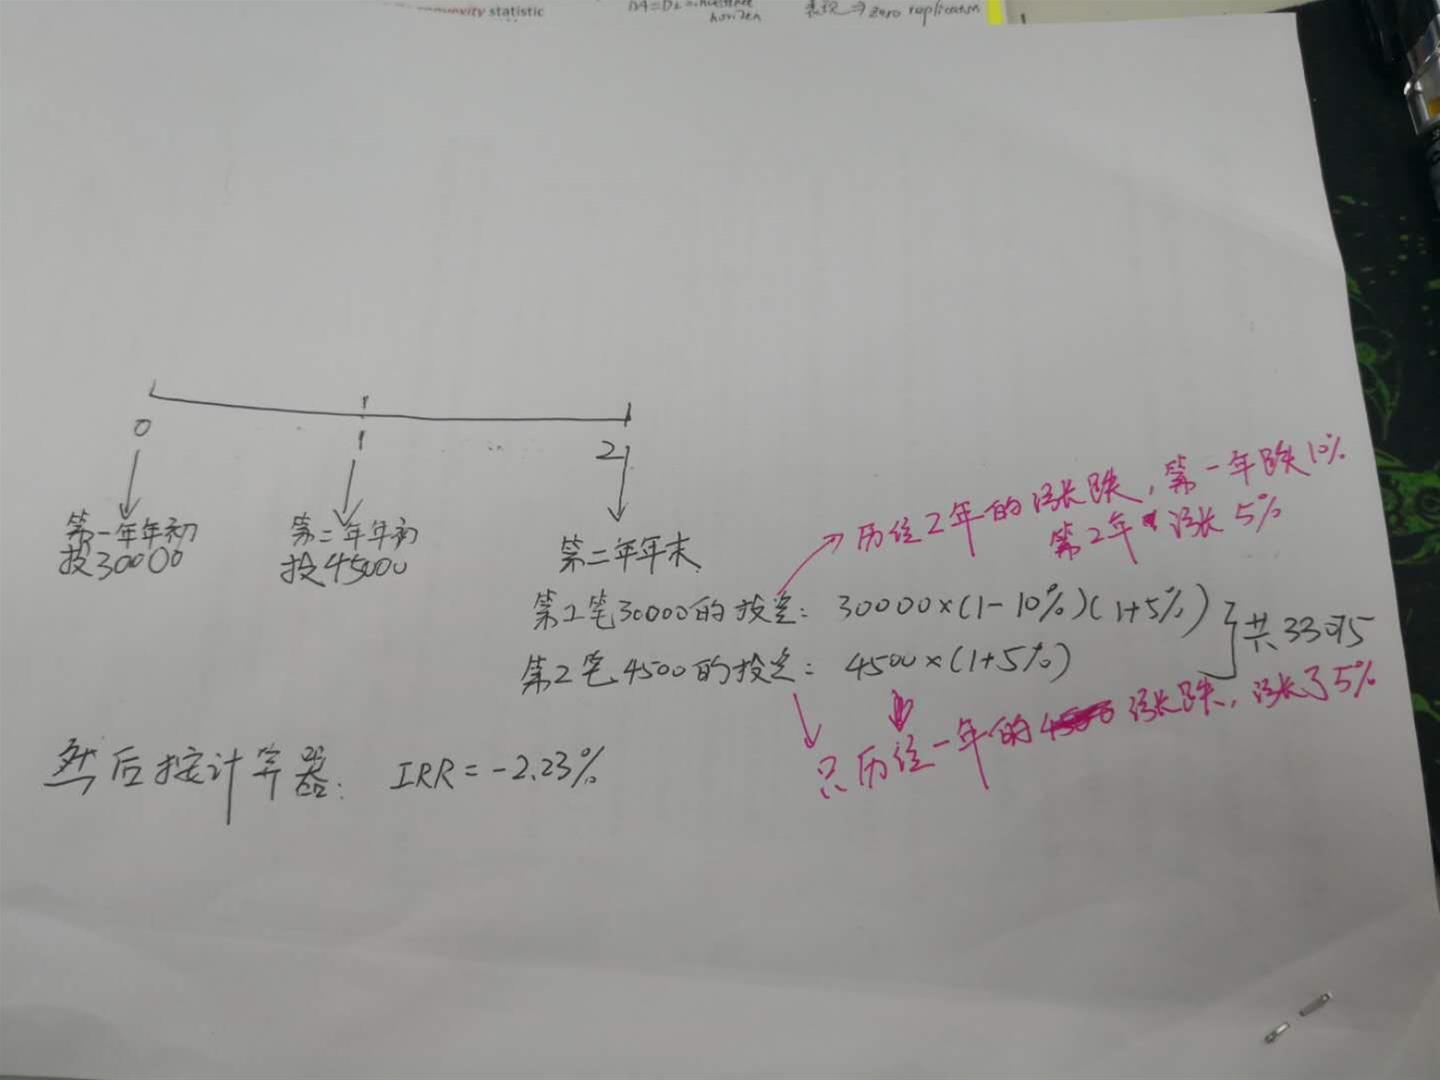 statistic
horizen
表现⇒zero replication
0
1
2
第一年年初
投30000
第二年年初
投4500
第二年年末
→历经2年的涨长跌,第一年跌10%
第2年涨长5%
第1笔30000的投资: 30000×(1-10%)(1+5%)
第2笔4500的投资: 4500×(1+5%)
共33075
只历经一年的涨长跌,涨长了5%
然后按计算器: IRR=-2.23%